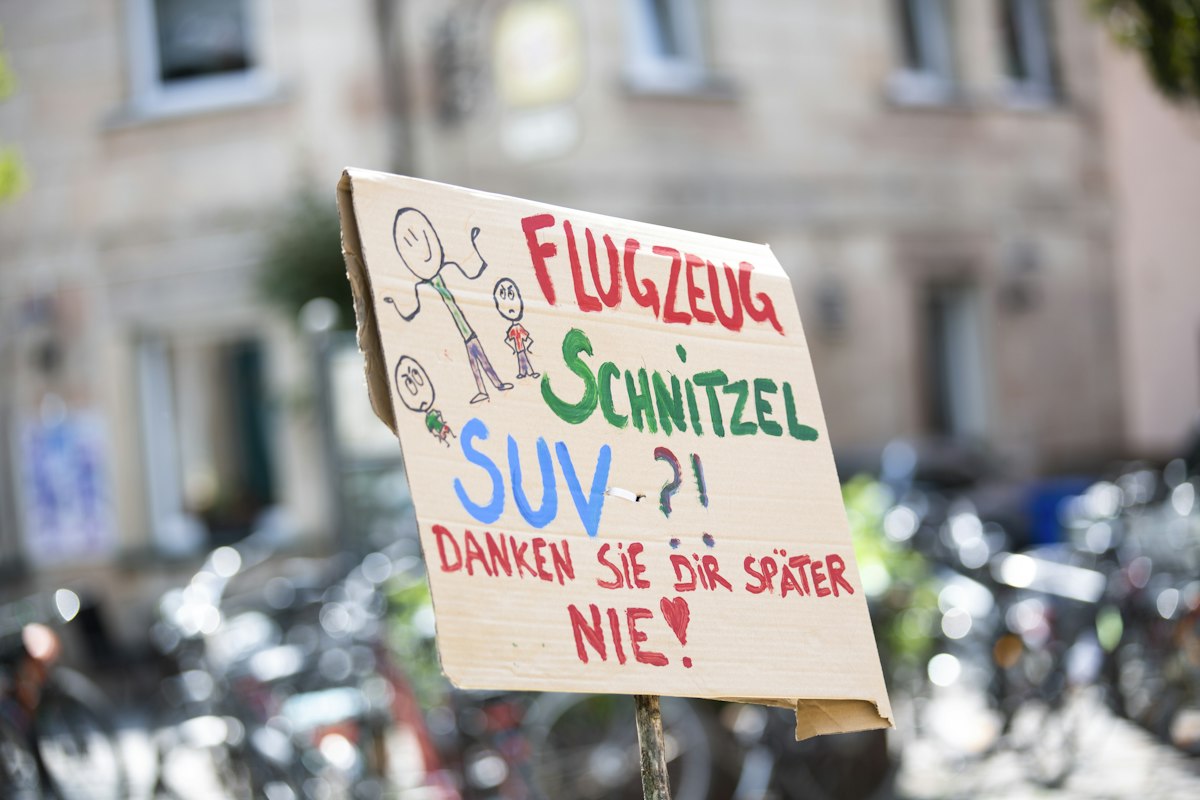 FLUGZEUG
SCHNITZEL
SUV ?!
DANKEN SIE DIR SPÄTER
NIE!